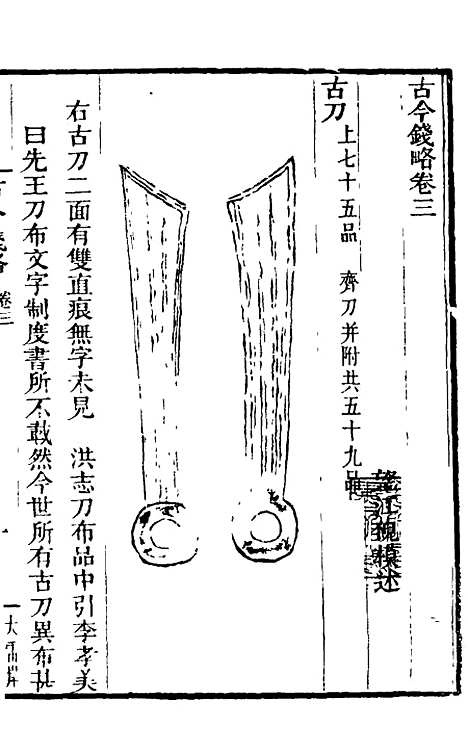 古今錢略卷三
江倪模述
古刀 上七十五品 齊刀并附共五十九品
右古刀二面有雙直痕無字未見 洪志刀布品中引李孝美
曰先王刀布文字制度書所不載然今世所有古刀異布甚
卷三
一
大雷岸